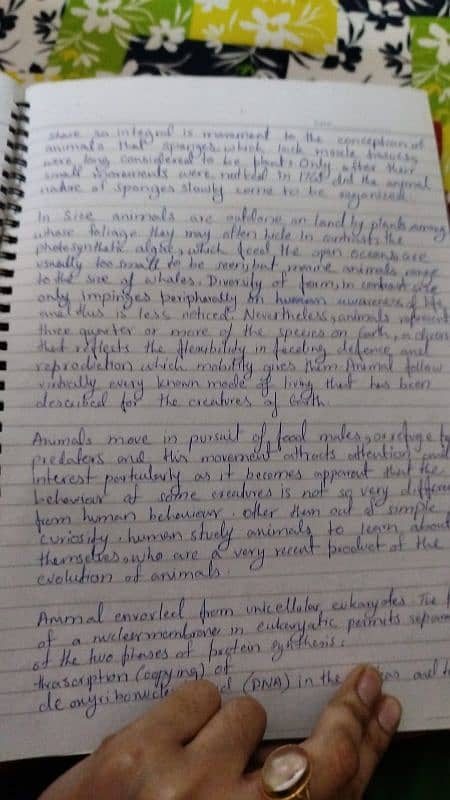 stave so integral is movement to the conception of
animals that sponges which lack muscle tissues
were long considered to be plants. Only after their
small movements were noticed in 1765 did the animal
nature of sponges slowly come to be recognized.
In size animals are outdone on land by plants among
whose foliage they may often hide in contrast, the
photosynthetic algae, which feed the open oceans are
usually too small to be seen, but marine animals range
to the size of whales. Diversity of form, in contrast size
only impinges peripherally on human awareness of life
and thus is less noticed. Nevertheless, animals represent
three quarter or more of the species on Earth, a
that reflects the flexibility in feeding defence and
reproduction which mobility gives them. Animal follow
virtually every known mode of living that has been
described for the creatures of Earth.
Animals move in pursuit of food mates, or refuge
predators and this movement attracts attention and
interest particularly as it becomes apparent that the
behaviour of some creatures is not so very differen
from human behaviour. Other then out of simple
curiosity, human study animals to learn about
themselves, who are a very recent product of the
evolution of animals.
Animal envovled from unicellular eukaryotes The
of a nuclearmembrane in eukaryotic permits separa
of the two phases of protein synthesis:
trasorption (copying) of
de oxyribonucle (DNA) in the and